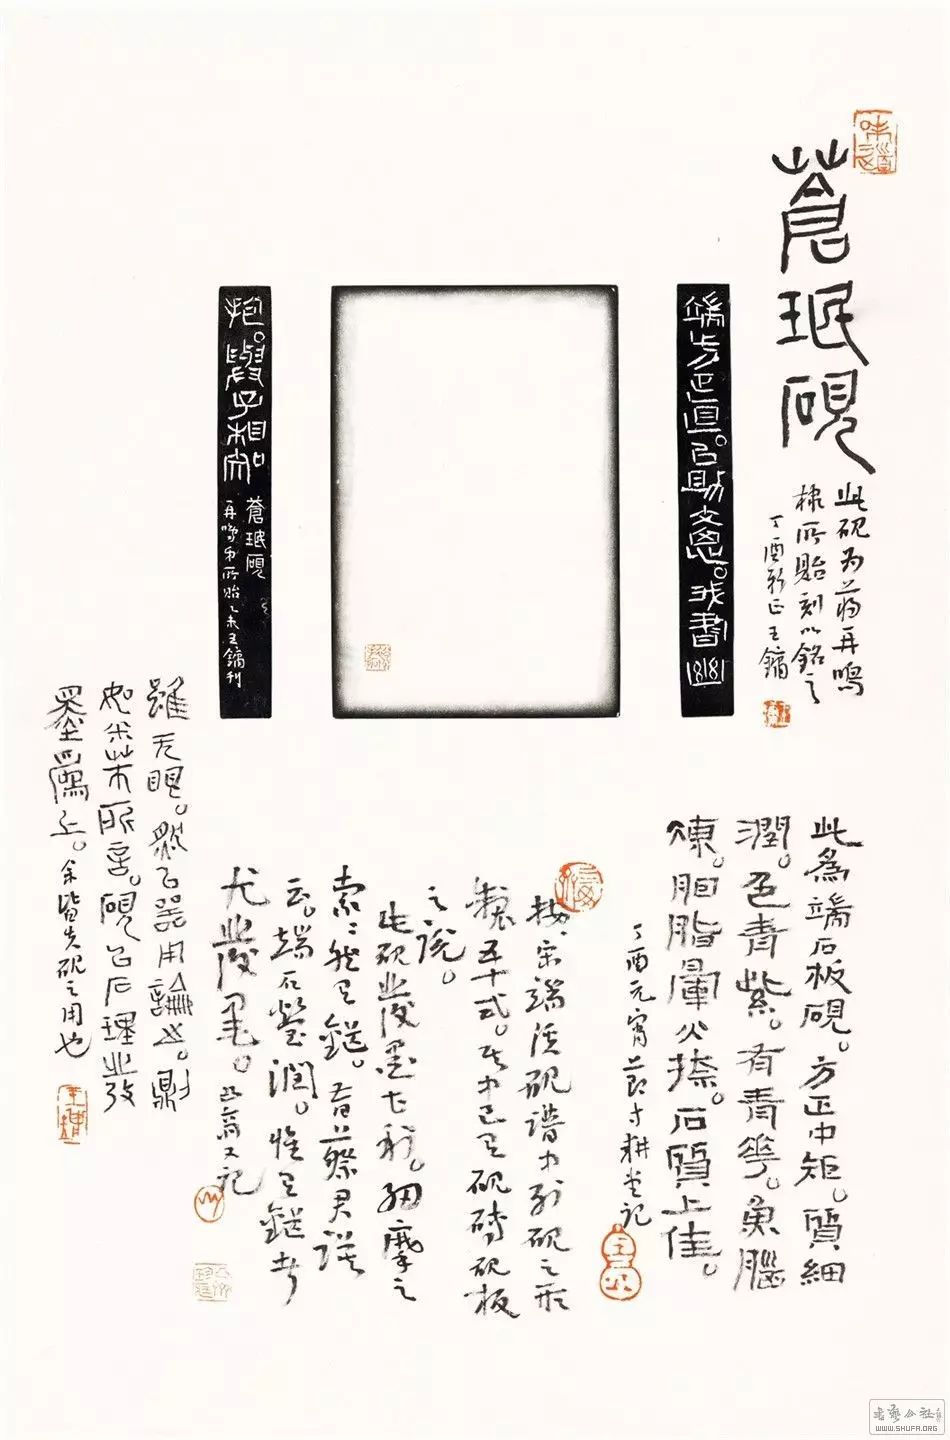 蒼珉硯
此硯为蒋再鳴
棣所貽刻以銘之
丁酉新正王鏞
端方正直。以助文思。我書
抱。與子相知
蒼珉硯
再鳴弟所貽乙未王鏞刊
此為端石板硯。方正中矩。質細
潤。色青紫。有青花。魚腦
凍。胭脂暈火捺。石質上佳。
丁酉元宵節寸耕堂記
按、宋端溪硯譜中列硯之形
製五十式。其中已有硯磚硯板
之說。
此硯發墨亡移。細摩之
索索然有鋩。昔蔡君謨
云。端石瑩潤。惟有鋩者
尤發墨。
又記
雖无眼。然以器用論之。則
如米芾所言。硯以石理發
墨為上。余皆失硯之用也
WWW.SHUFA.ORG